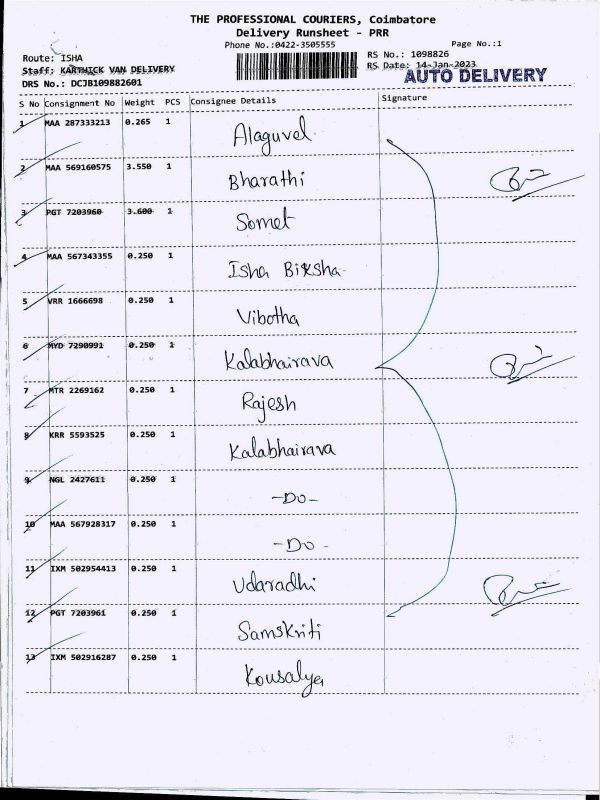 THE PROFESSIONAL COURIERS, Coimbatore
Delivery Runsheet - PRR
Phone No.:0422-3505555
Page No.:1
Route: ISHA
RS No.: 1098826
Staff: KARTHICK VAN DELIVERY
RS Date: 14-Jan-2023
AUTO DELIVERY
DRS No.: DCJB109882601
S No Consignment No Weight PCS Consignee Details Signature
1 MAA 287333213 0.265 1 Alaguvel
2 MAA 569160575 3.550 1 Bharathi
3 PGT 7203960 3.600 1 Somet
4 MAA 567343355 0.250 1 Isha Biksha
5 VRR 1666698 0.250 1 Vibotha
6 MYD 7290991 0.250 1 Kalabhairava
7 MTR 2269162 0.250 1 Rajesh
8 KRR 5593525 0.250 1 Kalabhairava
9 NGL 2427611 0.250 1 -Do-
10 MAA 567928317 0.250 1 -Do-
11 IXM 502954413 0.250 1 Udaradhi
12 PGT 7203961 0.250 1 Samskriti
13 IXM 502916287 0.250 1 Kousalya